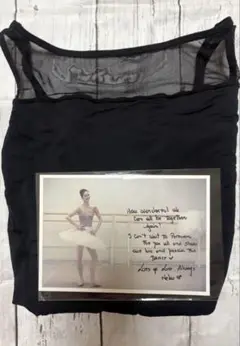 How wonderful we
can all be together
again!
I can't wait to Perform
for you all and share
and live and passion the
Dance
Lots of Love Always